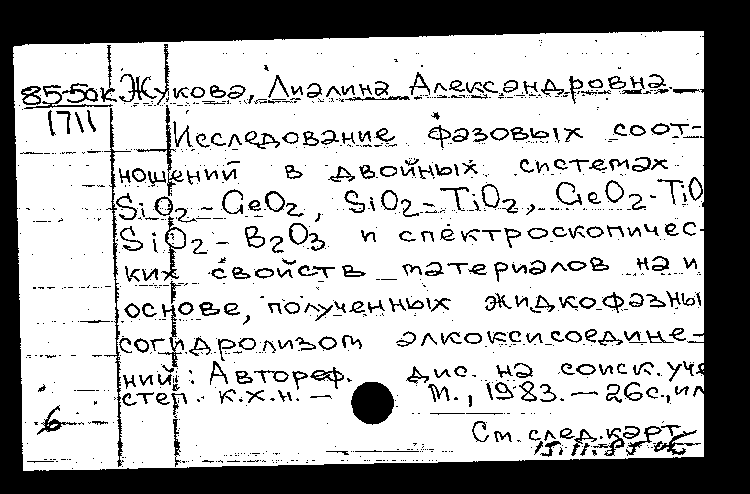 85-50к Жукова, Лиалина Александровна
1711
Исследование фазовых соот-
ношений в двойных системах
SiO2-GeO2, SiO2-TiO2, GeO2-TiO
SiO2-B2O3 и спектроскопичес-
ких свойств материалов на и
основе, полученных жидкофазны
согидролизом алкоксисоедине-
ний: Автореф. дис. на соиск. уче
степ. к.х.н. — М., 1983. — 26с., ил
6
См. след. карт.